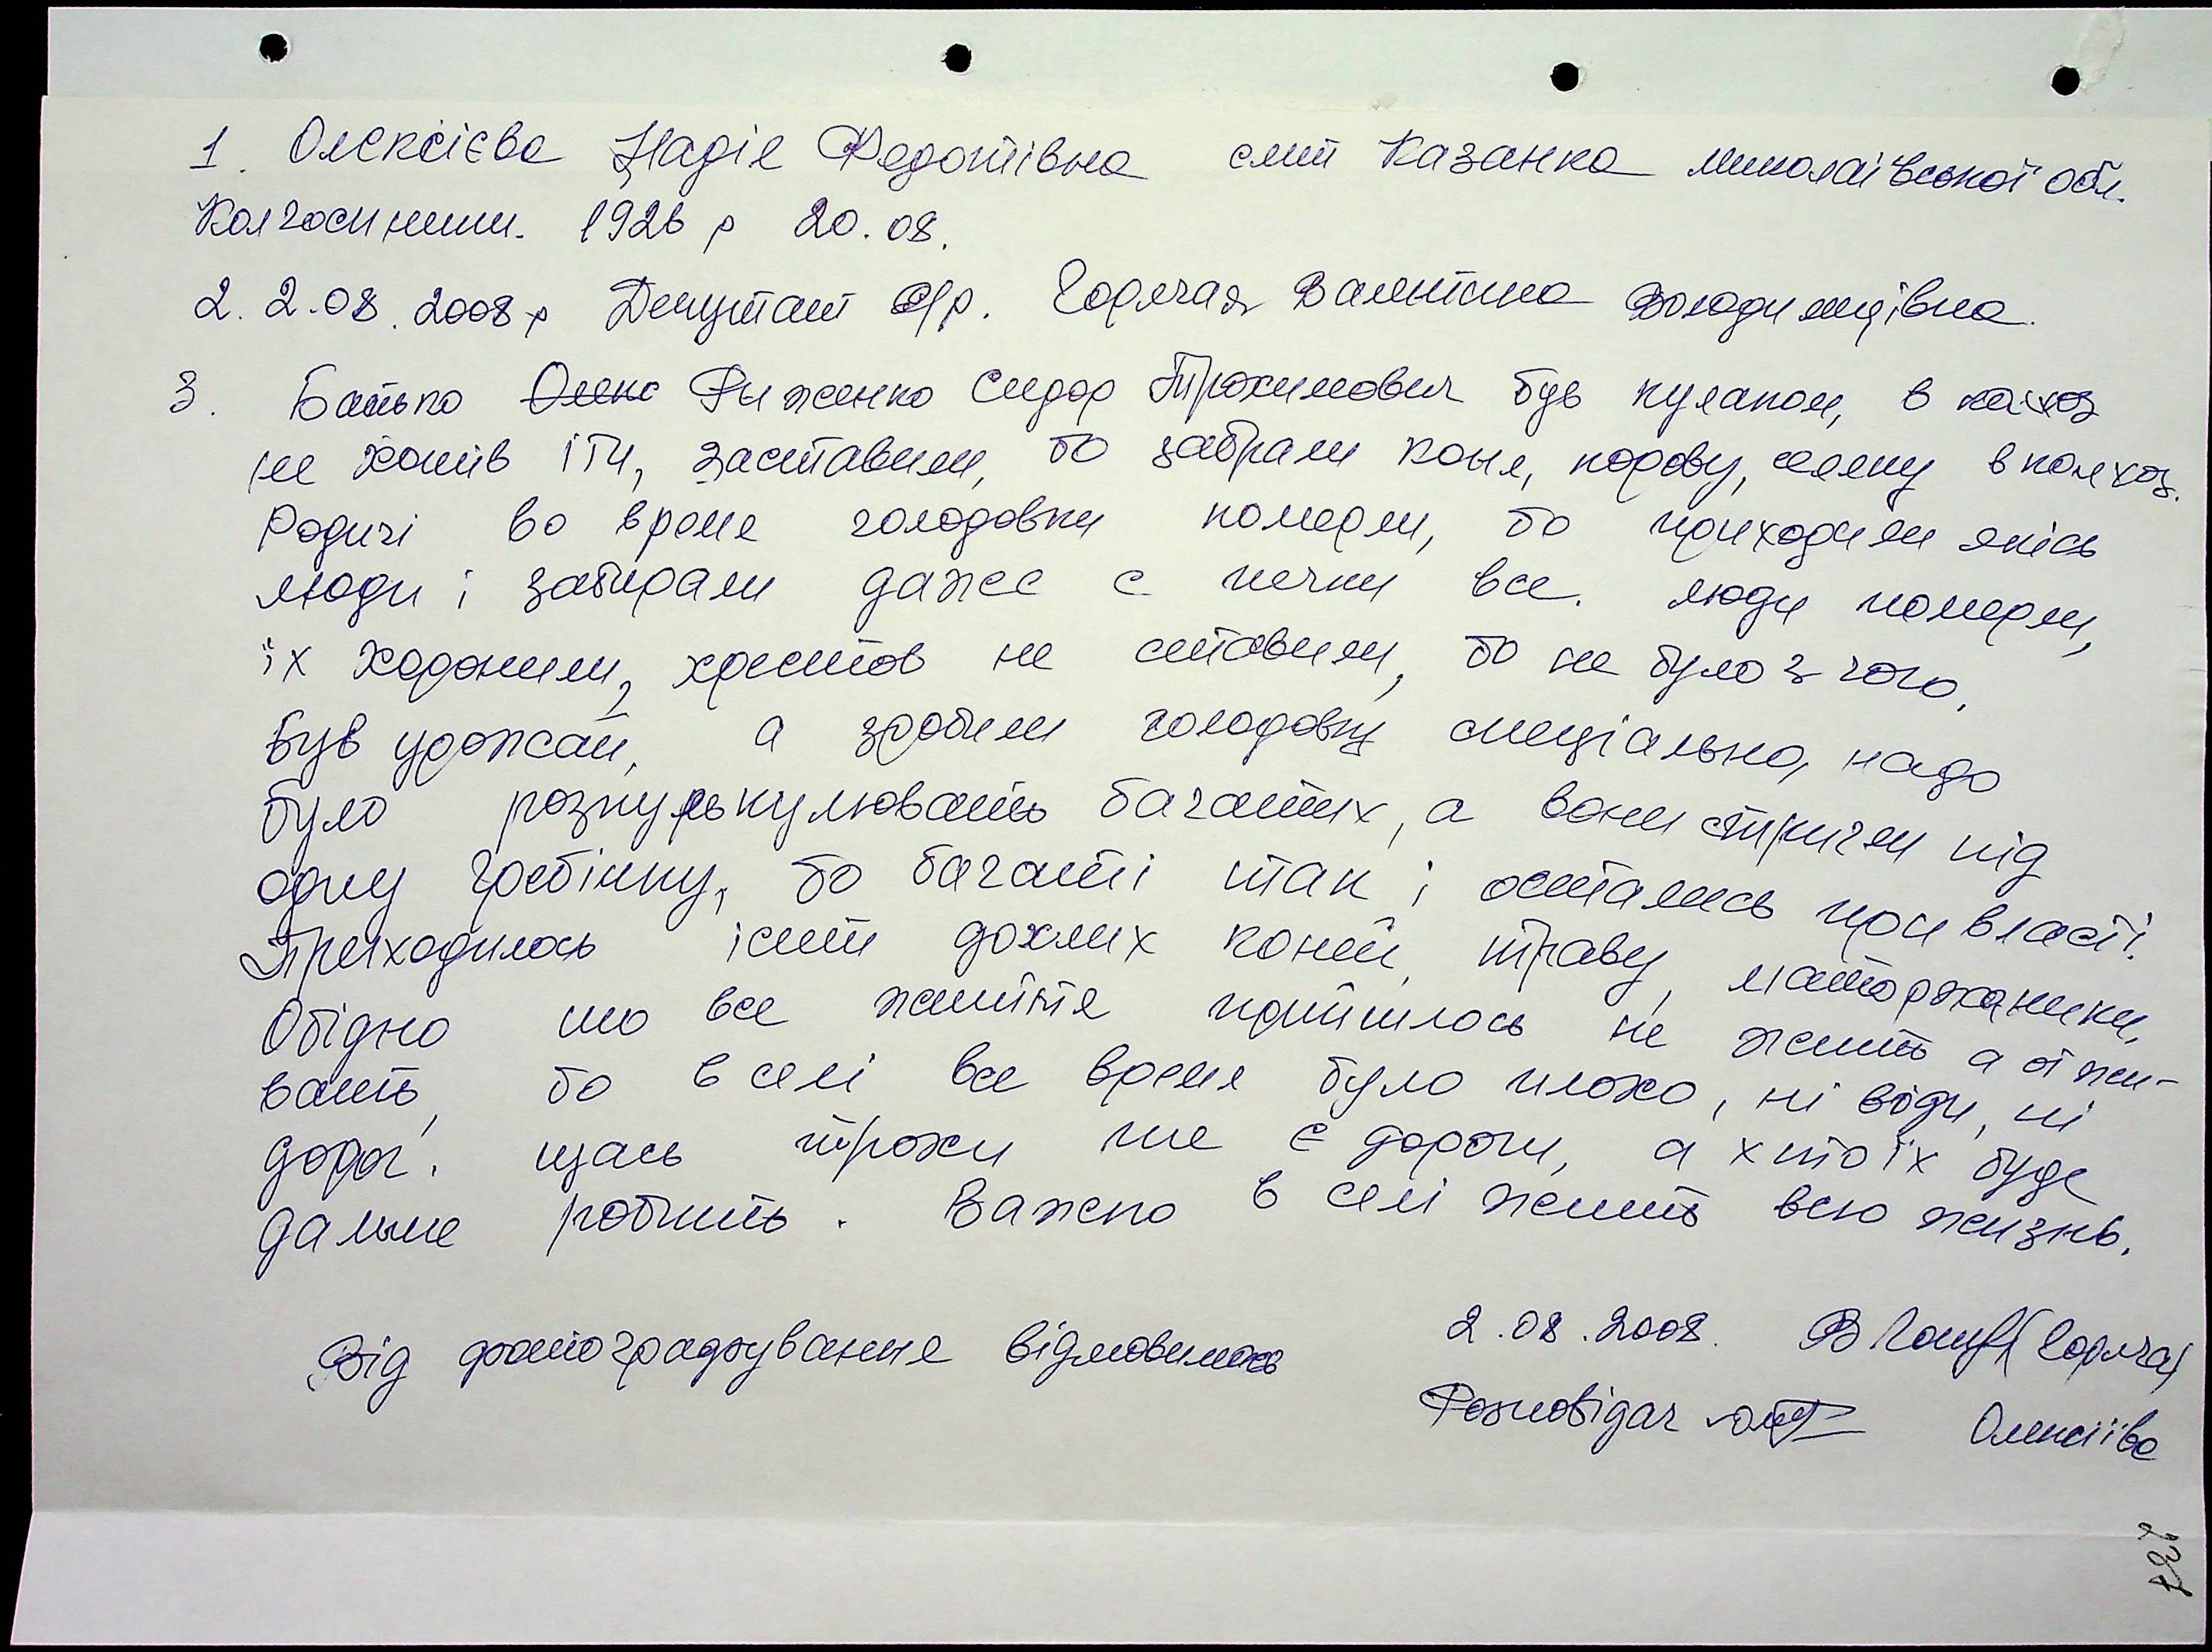 1. Олексієва Надія Федотівна смт Казанка Миколаївської обл.
Колгоспниця. 1926 р 20.08.
2. 2.08.2008 р Депутат с/р. Горячая Валентина Володимирівна.
3. Батько Олекс Рыженко Сидор Трохимович був кулаком, в колхоз
не хотів іти, заставили, бо забрали коня, корову, сеялку в колхоз.
Родичі во время голодовки померли, бо приходили якісь
люди і забирали даже с печки все. Люди померли,
їх хоронили, хрестов не ставили, бо не було з чого.
Був урожай, а зробили голодовку спеціально, надо
було розкулькулювать багатих, а вони стригли під
одну гребінку, бо багаті так і остались при власті.
Приходилось їсти дохлих коней, траву, маторжаники.
Обідно шо все життя прийшлось не жить а вижи-
вать, бо в селі все время було плохо, ні води, ні
дорог. щась трохи ше є дороги, а хто їх буде
дальше робить. Важко в селі жить всю жизнь.
Від фотографування відмовилась
2.08.2008. Горячая
Розповідач Олексіїва